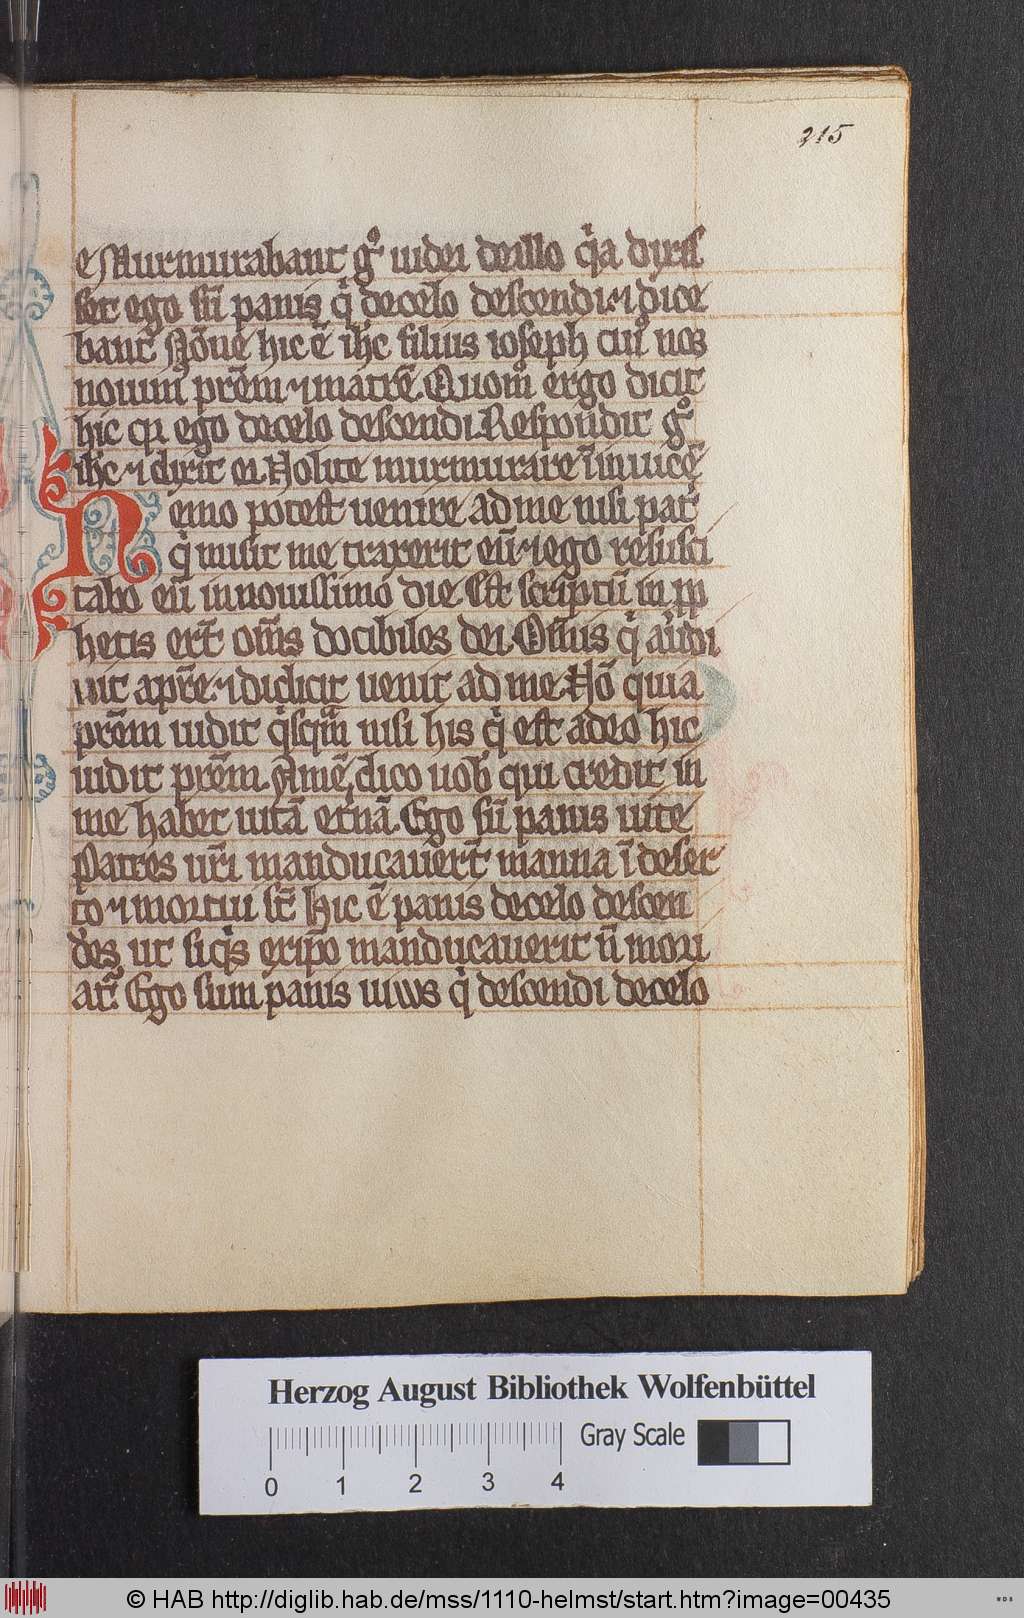 215
e Murmurabant gͦ iudei deillo qͥa dyxis
set ego sū panis qͥ decelo descendi ⁊ dice
bant Nōne hic ē ihc filius ioseph cuiꝰ nos
nouimꝰ prēm ⁊ matrē. Quomͦ ergo dicit
hic qꝛ ego decelo descendi. Respondit gͦ
ihc ⁊ dixit ei. Nolite murmurare ī inuicē
Nemo potest uenire ad me nisi patͥ
qͥ misit me traxerit eū ⁊ ego resusci
tabo eū in nouissimo die Est scriptū in ꝓp
hetis ert̄ om̄s docibiles dei. Om̄is qͥ audi
uit apr̄e ⁊ didicit uenit ad me Nō quia
prēm uidit qͥsqͣm nisi his qͥ est adeo hic
uidit prēm. Amē, dico uob̄ qui credit in
me habet uitā et̄nā. Ego sū panis uite
Patres ur̄i manducauert̄ manna ī deser
to ⁊ mortui st̄ Hic ē panis decelo descen
des ut siqͥs exip̄o manducauerit n̄ mori
at᷑. Ego sum panis uiuus qͥ descendi decelo
Herzog August Bibliothek Wolfenbüttel
0 1 2 3 4 Gray Scale
© HAB http://diglib.hab.de/mss/1110-helmst/start.htm?image=00435